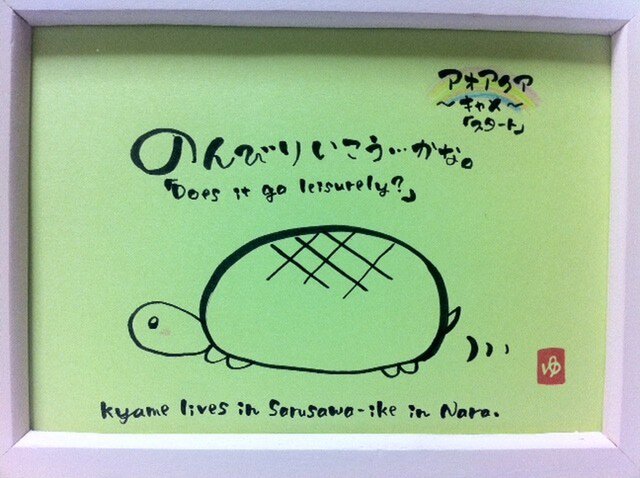 アオアクア
~キャメ~
「スタート」
のんびりいこう…かな。
「Does it go leisurely?」
kyame lives in Sarusawa-ike in Nara.
ゆ